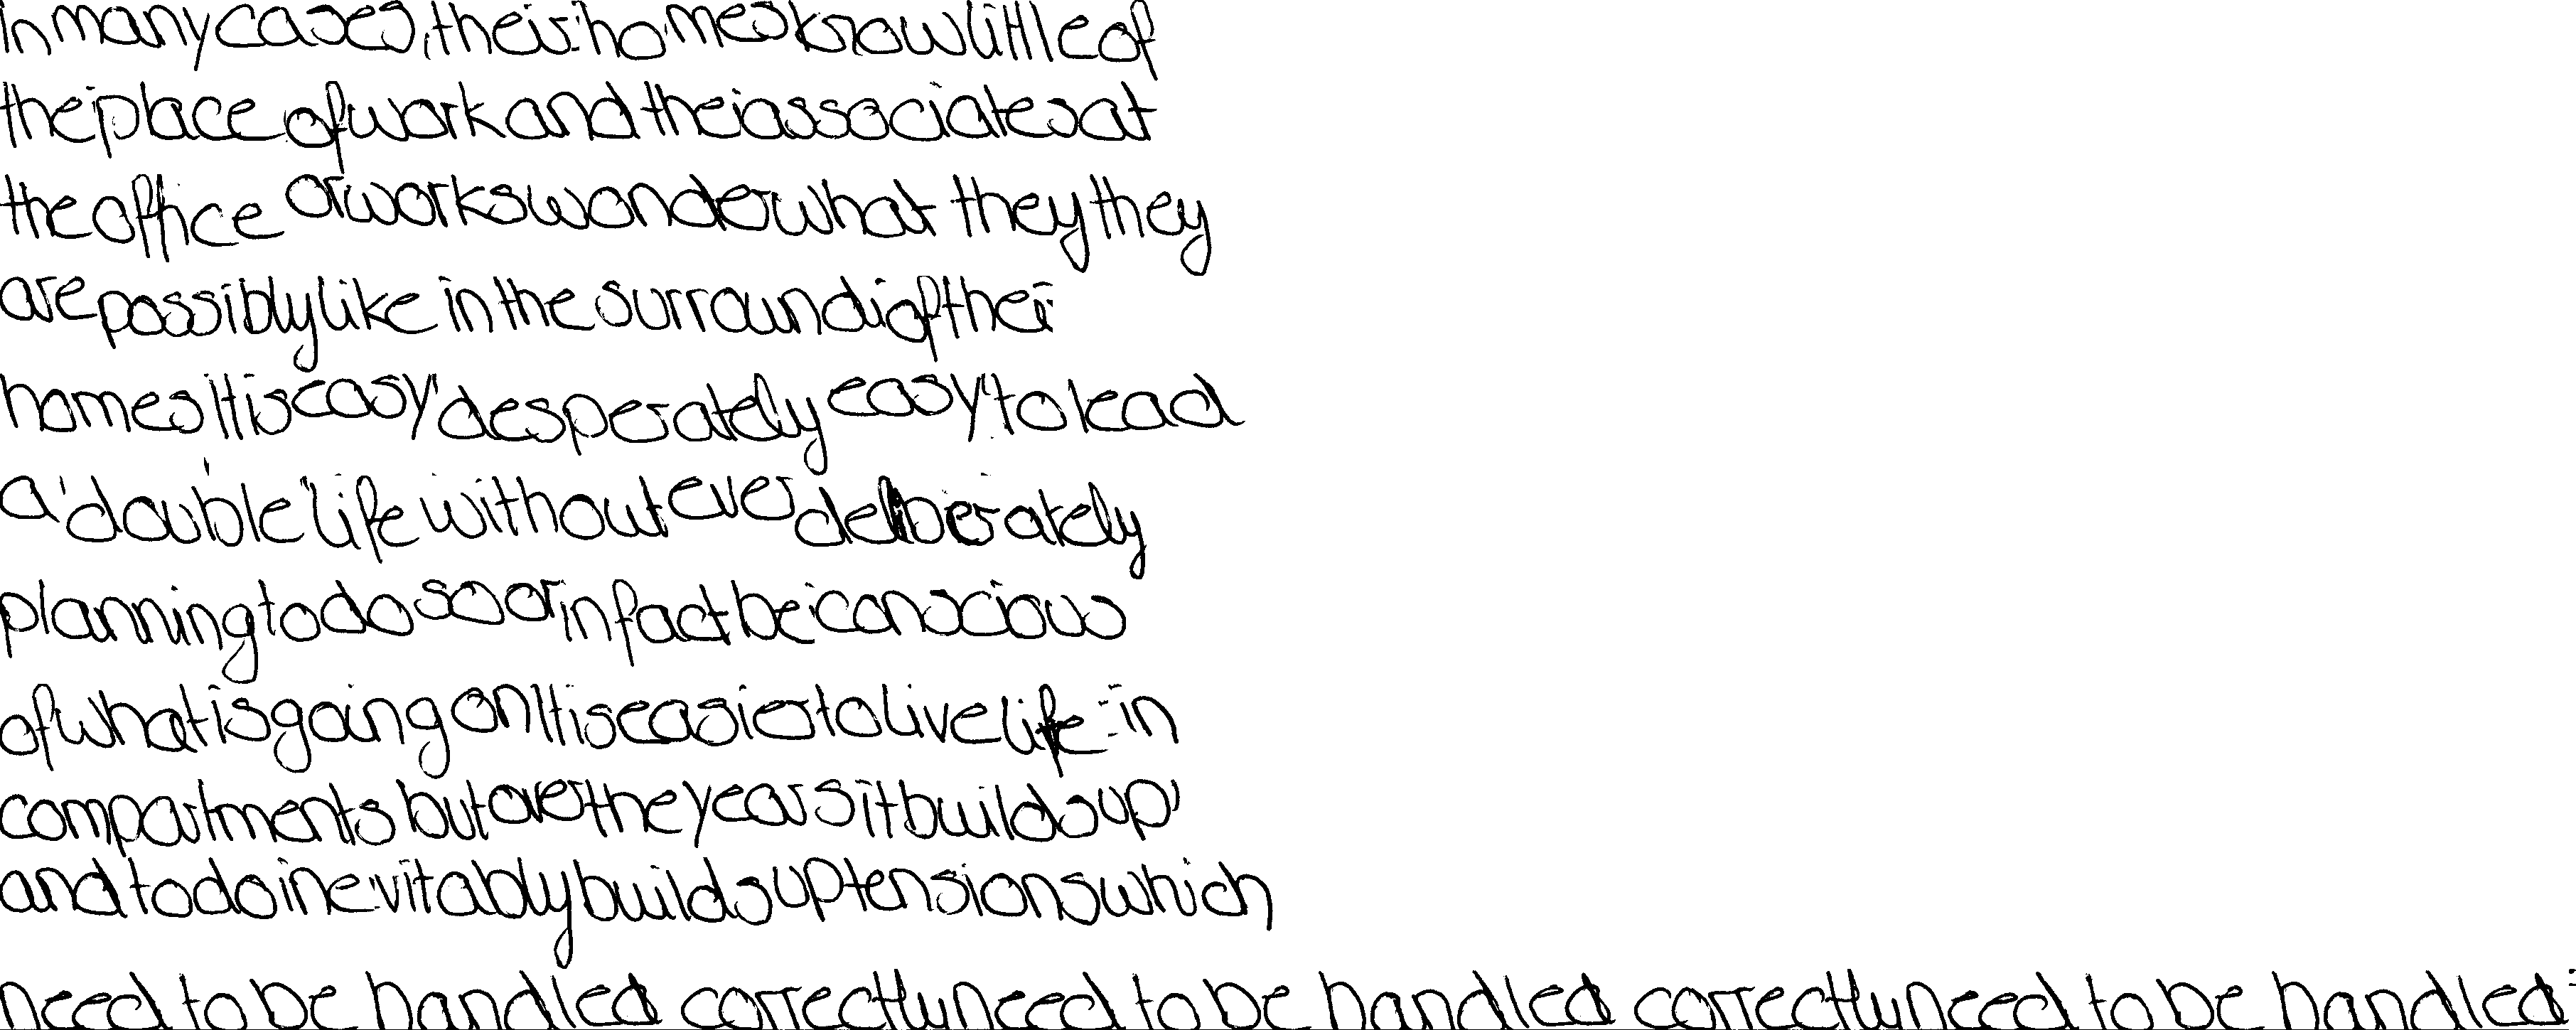 In many cases, their homes know little of
the place of work and thei associates at
the office or works wonder what they they
are possibly like in the surroundi of their
homes It is easy desperately easy to lead
a 'double' life without ever deliberately
planning to do so or in fact be conscious
of what is going on It is easier to live life in
compartments but over the years it builds up
and to do inevitably builds up tensions which
need to be handled correctly need to be handled correctly need to be handled